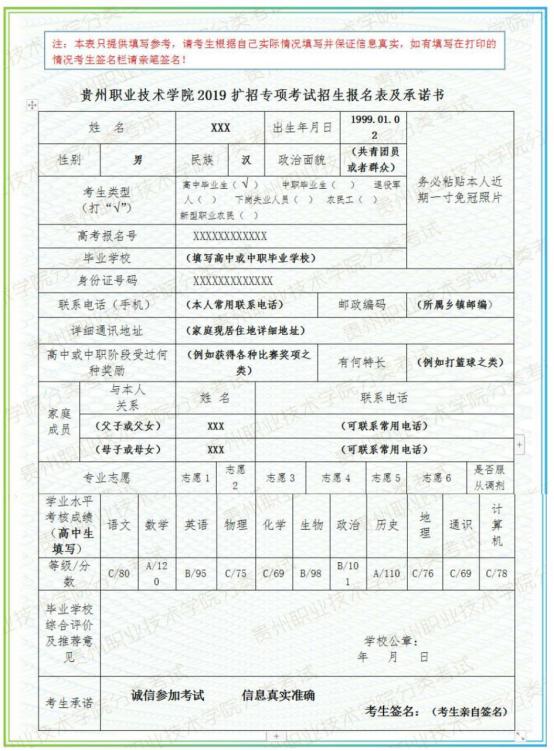 注：本表只提供填写参考，请考生根据自己实际情况填写并保证信息真实，如有填写在打印的
情况考生签名栏请亲笔签名！
贵州职业技术学院 2019 扩招专项考试招生报名表及承诺书
姓 名 XXX 出生年月日 1999.01.0
2
性别 男 民族 汉 政治面貌 （共青团员
或者群众）
务必粘贴本人近
期一寸免冠照片
考生类型
（打“√”）
高中毕业生（√） 中职毕业生（ ） 退役军
人（ ） 下岗失业人员（ ） 农民工（ ）
新型职业农民（ ）
高考报名号 XXXXXXXXXXXX
毕业学校 （填写高中或中职毕业学校）
身份证号码 XXXXXXXXXXXXX
联系电话（手机） （本人常用联系电话） 邮政编码 （所属乡镇邮编）
详细通讯地址 （家庭现居住地详细地址）
高中或中职阶段受过何
种奖励
（例如获得各种比赛奖项之
类）
有何特长 （例如打篮球之类）
家庭
成员
与本人
关系
姓 名 联系电话
（父子或父女） XXX （可联系常用电话）
（母子或母女） XXX （可联系常用电话）
专业志愿 志愿 1 志愿
2
志愿 3 志愿 4 志愿 5 志愿 6 是否服
从调剂
学业水平
考核成绩
（高中生
填写）
语文 数学 英语 物理 化学 生物 政治 历史 地
理
通识 计
算
机
等级/分
数
C/80 A/12
0
B/95 C/75 C/69 B/98 B/10
1
A/110 C/76 C/69 C/78
毕业学校
综合评价
及推荐意
见
学校公章：
年 月 日
考生承诺 诚信参加考试 信息真实准确
考生签名：（考生亲自签名）
贵州职业技术学院分类考试